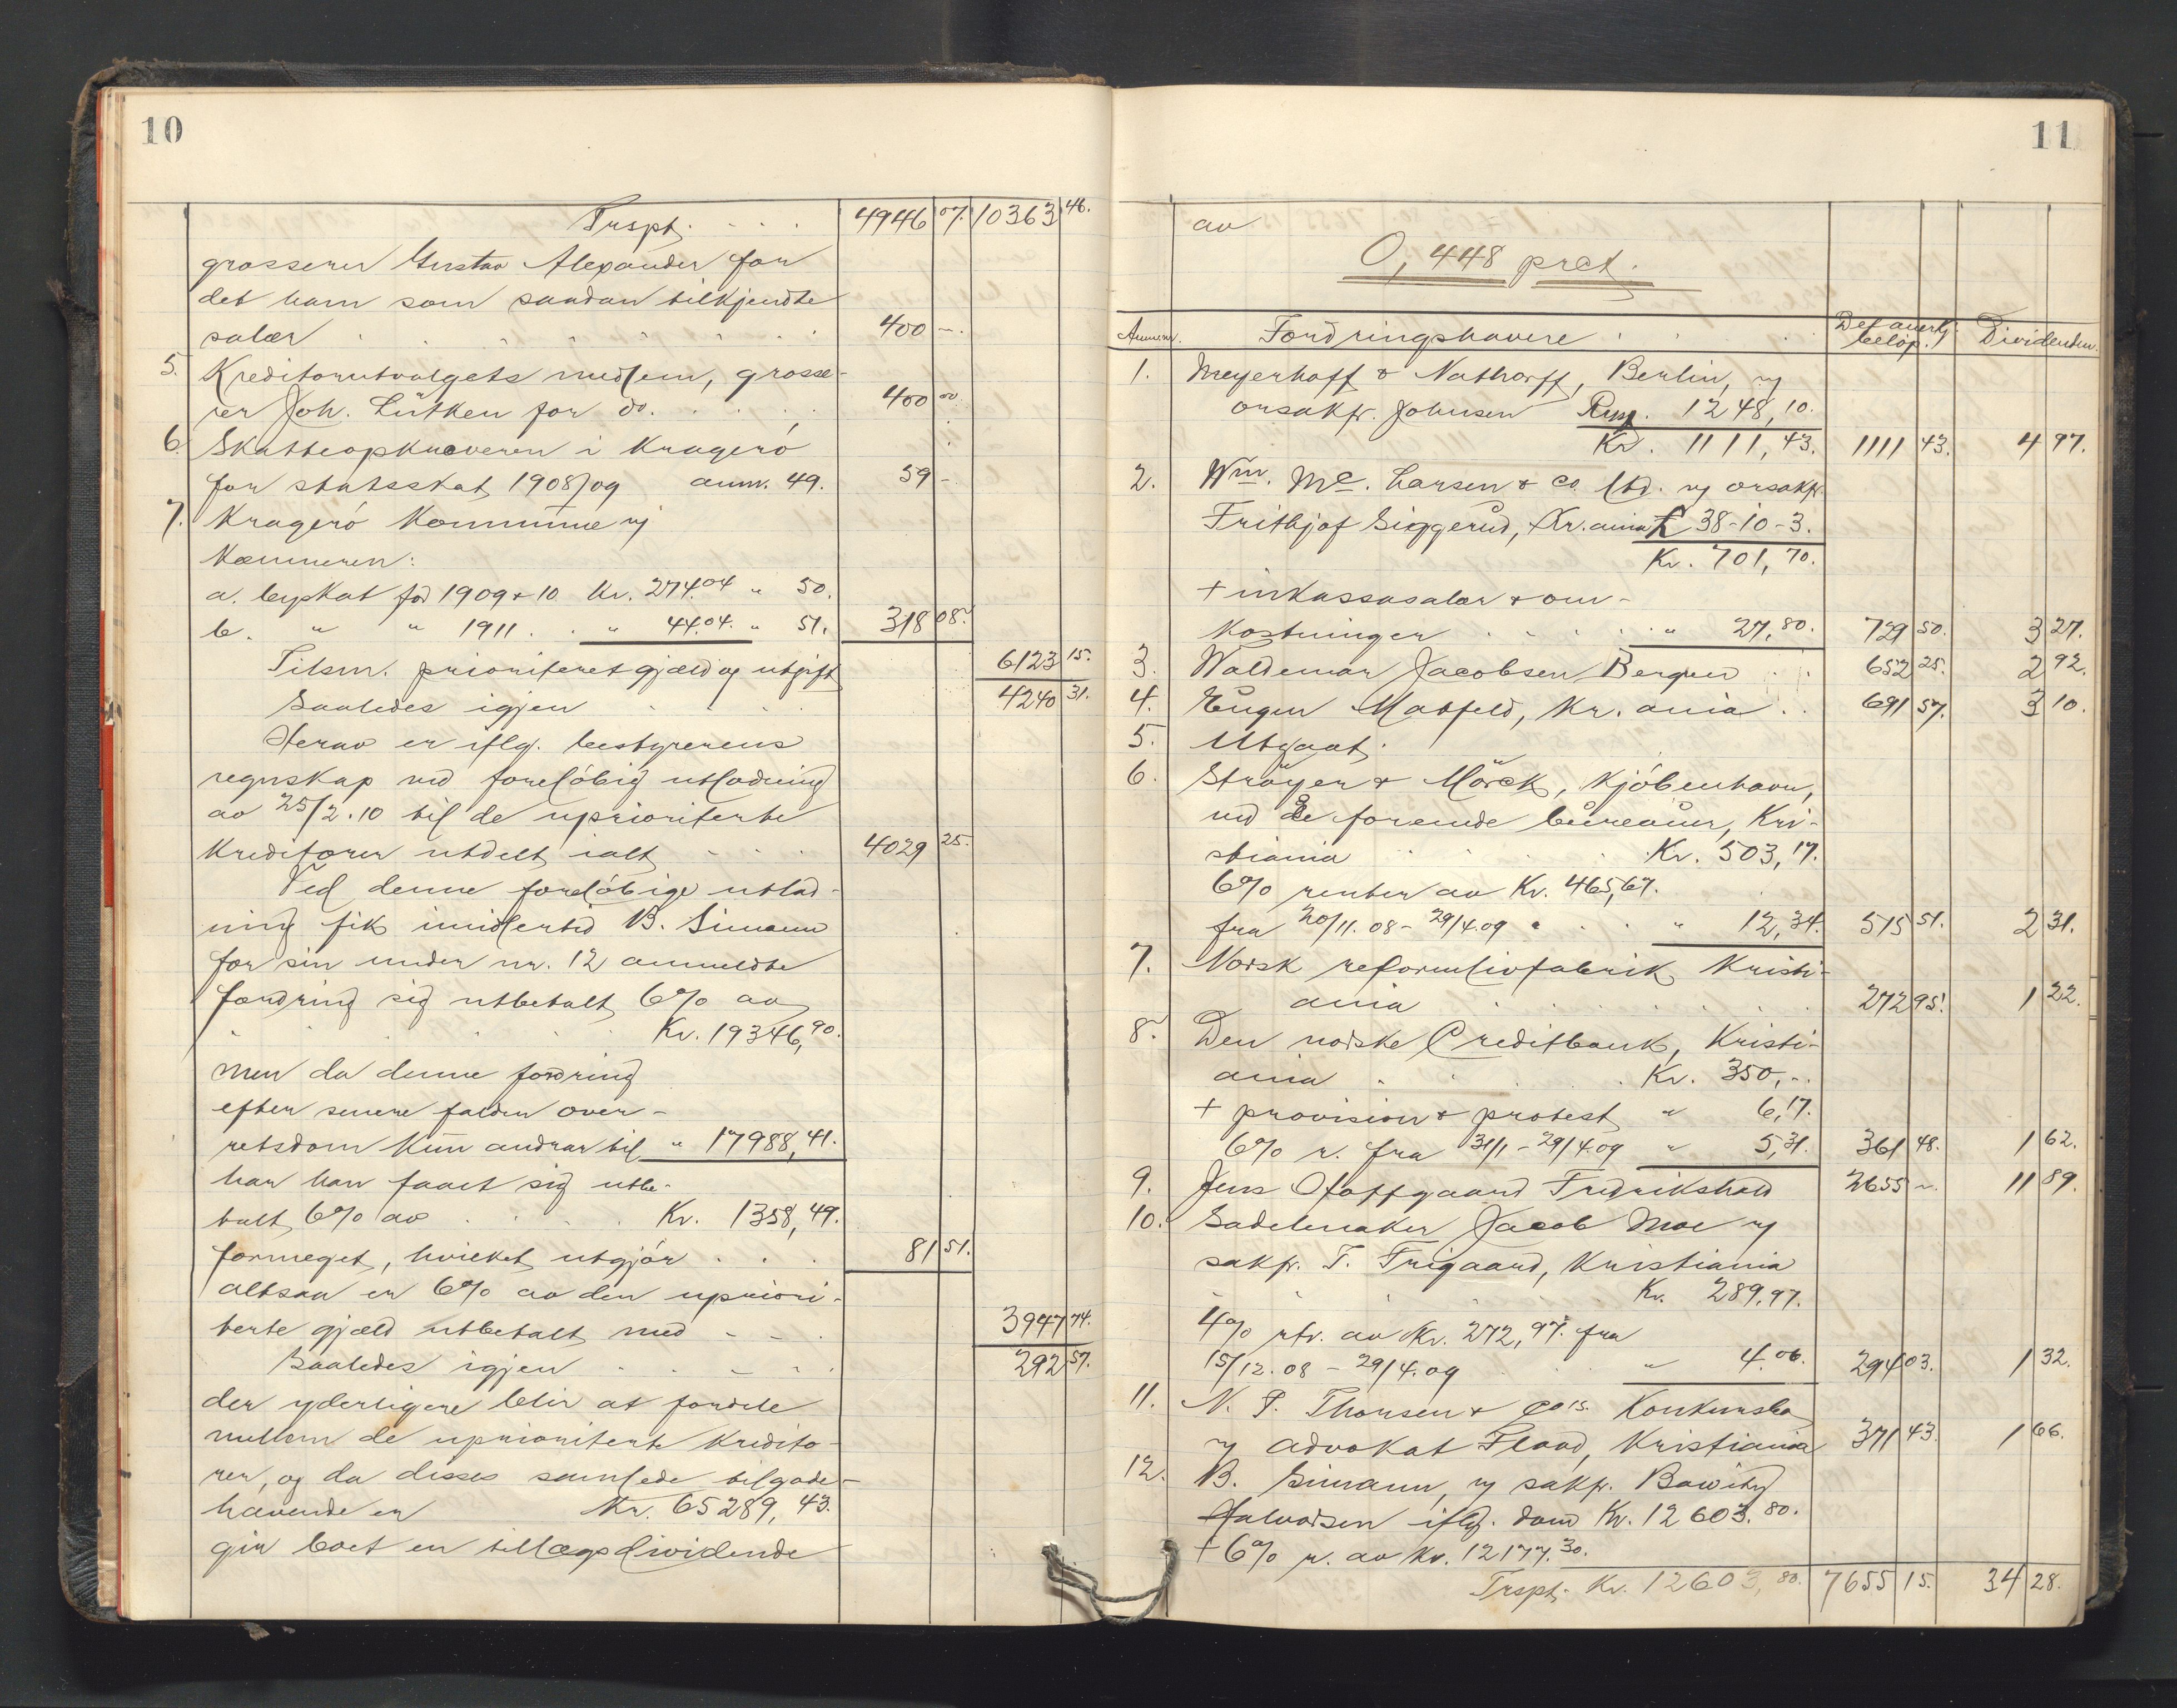 10
Trspt. . . . 4946 07. 10363 46.
grosserer Gustav Alexander for
det ham som saadan tilkjendte
salær . . . . . . . 400 -.
5. Kreditorutvalgets medlem, grosse-
rer Joh. Lütken for do. . . . . 400 00
6. Skatteopkræveren i Kragerö
for statsskat 1908/09 anm. 49. 59 -
7. Kragerö Kommune v/
Kæmneren:
a. byskat for 1909 + 10 Kr. 274.04 " 50.
b. " " 1911 . . " 44.04. " 51. 318 08.
Tilsm. prioriteret gjæld og utgift 6123 15.
Saaledes igjen . . . . 4240 31.
Herav er iflg. bestyrerens
regnskap ved foreløbig utlodning
av 25/2.10 til de uprioriterte
Kreditorer utdelt ialt . . . 4029 25.
Ved denne foreløbige utlod-
ning fik imidlertid B. Simann
for sin under nr. 12 anmeldte
fordring sig utbetalt 6% av
. . . . . Kr. 19346,90.
men da denne fordring
efter senere falden over-
retsdom kun andrar til " 17988,41.
har han faaet sig utbe-
talt 6% av . . . . Kr. 1358,49.
formeget, hvilket utgjör . . . 81 51.
altsaa er 6% av den upriori-
terte gjæld utbetalt med - - . 3947 74.
Saaledes igjen . . . . . 292 57.
der yderligere blir at fordele
mellem de uprioriterte Kredito-
rer, og da disses samlede tilgode-
havende er Kr. 65289,43.
gir boet en tillægsdividende
11
av
0,448 prct.
Anm.nr. Fordringshavere . . . Det anerkj. beløp. Dividenden.
1. Meyerhoff & Nathorff, Berlin, v/
orsakfr. Johnsen Rmp. 1248,10.
Kr. 1111,43. 1111 43. 4 97.
2. Wm. Mc. Larsen & Co. ltd. v/ orsakfr.
Frithjof Siggerud, Kr.ania £ 38-10-3.
Kr. 701,70.
+ inkassosalær & om-
kostninger . . . . . " 27,80. 729 50. 3 27.
3. Waldemar Jacobsen, Bergen . . 652 25. 2 92.
4. Eugen Matfeld, Kr.ania . . 691 57. 3 10.
5. Utgaat.
6. Ströyer & Mörck, Kjöbenhavn,
ved De forenede bureauer, Kri-
stiania . . . . . Kr. 503,17.
6% renter av Kr. 465,67.
fra 20/11.08 - 29/4.09 . . . " 12,34. 515 51. 2 31.
7. Norsk reformlivfabrik, Kristi-
ania . . . . . . . 272 95. 1 22.
8. Den norske Creditbank, Kristi-
ania . . . . . Kr. 350,-.
+ provision & protest " 6,17.
6% r. fra 31/1 - 29/4.09 " 5,31. 361 48. 1 62.
9. Jens Olaffgaard Fredrikshald 2655 - 11 89.
10. Sadelmaker Jacob Moe v/
sakfr. T. Frigaard, Kristiania
. . . . . Kr. 289.97.
4% rtr. av Kr. 272,97. fra
15/12.08 - 29/4.09 . . " 4.06. 294 03. 1 32.
11. N. P. Thorsen & Co's. Konkursbo
v/ advokat Flood, Kristiania 371 43. 1 66.
12. B. Simann, v/ sakfr.
Halvorsen iflg. dom Kr. 12603.80.
+ 6% r. av Kr. 12177.30.
Trspt. Kr. 12603,80. 7655 15. 34 28.